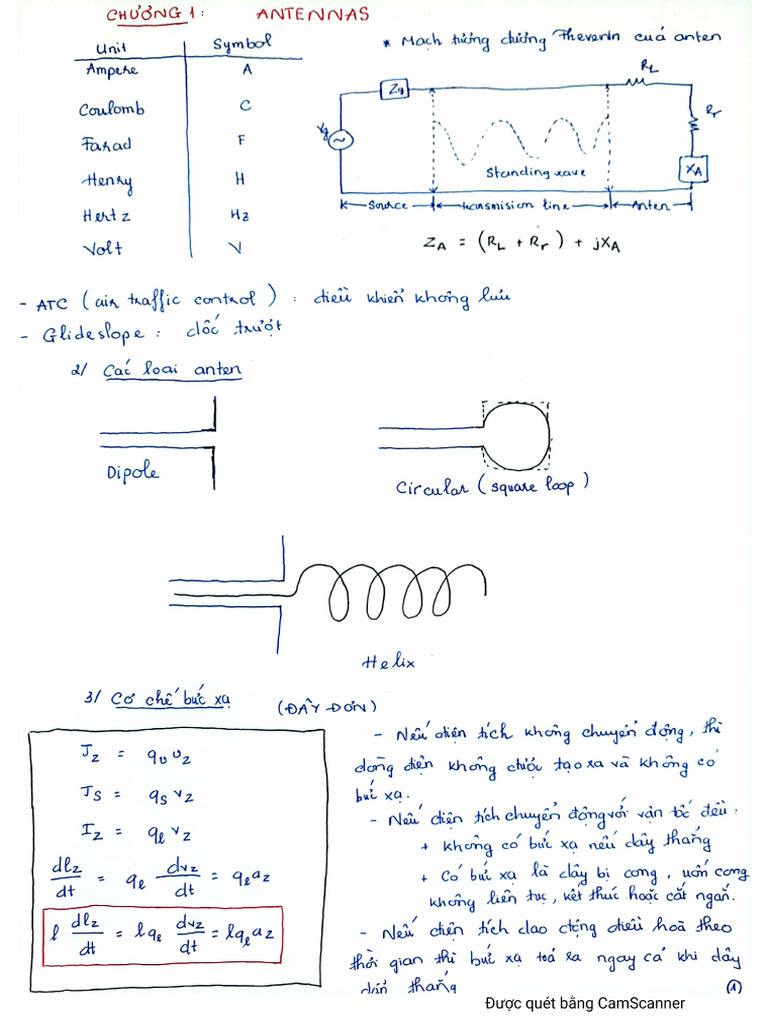 CHƯƠNG 1: ANTENNAS
Unit Symbol
Ampere A
Coulomb C
Farad F
Henry H
Hertz Hz
Volt V
* Mạch tương đương Thevenin của anten
Zg
RL
Rr
Vg
XA
Standing wave
Source
transmision line
Anten
ZA = (RL + Rr) + jXA
- ATC (air traffic control) : điều khiển không lưu
- Glideslope : dốc trượt
2/ Các loại anten
Dipole
Circular (square loop)
Helix
3/ Cơ chế bức xạ (DÂY ĐƠN)
Jz = qυ υz
Js = qs vz
Iz = ql vz
dlz/dt = ql dvz/dt = ql az
l dlz/dt = lql dvz/dt = lql az
- Nếu điện tích không chuyển động, thì
dòng điện không được tạo ra và không có
bức xạ.
- Nếu điện tích chuyển động với vận tốc đều :
+ không có bức xạ nếu dây thẳng
+ Có bức xạ là dây bị cong, uốn cong
không liên tục, kết thúc hoặc cắt ngắn.
- Nếu điện tích dao động điều hoà theo
thời gian thì bức xạ toả ra ngay cả khi dây
dẫn thẳng
(1)
Được quét bằng CamScanner